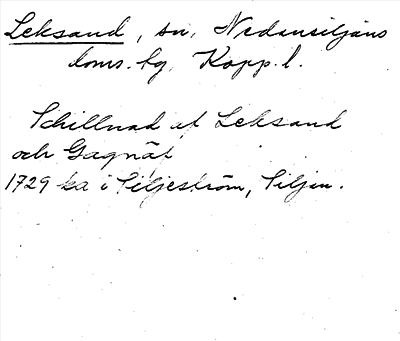 Leksand, sn, Nedansiljans
doms. hg, Kopp. l.
Skillnad af Leksand
och Gagnät
1729 ka i Siljeström, Siljan.